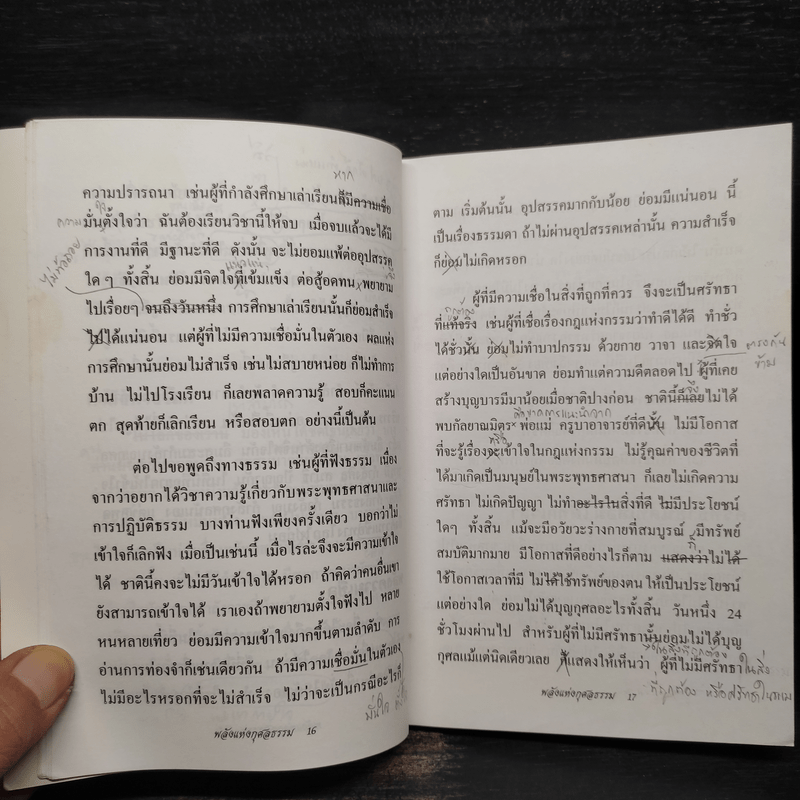 หาก
ความปรารถนา เช่นผู้ที่กำลังศึกษาเล่าเรียนก็มีความเชื่อ
ความ ใจ
มั่นตั้งใจว่า ฉันต้องเรียนวิชานี้ให้จบ เมื่อจบแล้วจะได้มี
ไม่ท้อถอย
การงานที่ดี มีฐานะที่ดี ดังนั้น จะไม่ยอมแพ้ต่ออุปสรรค
ใดๆ ทั้งสิ้น ย่อมมีจิตใจที่เข้มแข็ง ต่อสู้อดทน พยายาม
ไปเรื่อยๆ จนถึงวันหนึ่ง การศึกษาเล่าเรียนนั้นก็ย่อมสำเร็จ
ไปได้แน่นอน แต่ผู้ที่ไม่มีความเชื่อมั่นในตัวเอง ผลแห่ง
การศึกษานั้นย่อมไม่สำเร็จ เช่นไม่สบายหน่อย ก็ไม่ทำการ
บ้าน ไม่ไปโรงเรียน ก็เลยพลาดความรู้ สอบก็คะแนน
ตก สุดท้ายก็เลิกเรียน หรือสอบตก อย่างนี้เป็นต้น
ต่อไปขอพูดถึงทางธรรม เช่นผู้ที่ฟังธรรม เนื่อง
จากว่าอยากได้วิชาความรู้เกี่ยวกับพระพุทธศาสนาและ
การปฏิบัติธรรม บางท่านฟังเพียงครั้งเดียว บอกว่าไม่
เข้าใจก็เลิกฟัง เมื่อเป็นเช่นนี้ เมื่อไรล่ะจึงจะมีความเข้าใจ
ได้ ชาตินี้คงจะไม่มีวันเข้าใจได้หรอก ถ้าคิดว่าคนอื่นเขา
ยังสามารถเข้าใจได้ เราเองถ้าพยายามตั้งใจฟังไป หลาย
หนหลายเที่ยว ย่อมมีความเข้าใจมากขึ้นตามลำดับ การ
อ่านการท่องจำก็เช่นเดียวกัน ถ้ามีความเชื่อมั่นในตัวเอง
ไม่มีอะไรหรอกที่จะไม่สำเร็จ ไม่ว่าจะเป็นกรณีอะไรก็
มั่นใจ
พลังแห่งกุศลธรรม 16
ตาม เริ่มต้นนั้น อุปสรรคมากกับน้อย ย่อมมีแน่นอน นี้
เป็นเรื่องธรรมดา ถ้าไม่ผ่านอุปสรรคเหล่านั้น ความสำเร็จ
ก็ย่อมไม่เกิดหรอก
ผู้ที่มีความเชื่อในสิ่งที่ถูกที่ควร จึงจะเป็นศรัทธา
ถูกต้อง
ที่แท้จริง เช่นผู้ที่เชื่อเรื่องกฎแห่งกรรมว่าทำดีได้ดี ทำชั่ว
ได้ชั่วนั้น ย่อมไม่ทำบาปกรรม ด้วยกาย วาจา และจิตใจ
ตรงกันข้าม
แต่อย่างใดเป็นอันขาด ย่อมทำแต่ความดีตลอดไป ผู้ที่เคย
สร้างบุญบารมีมาน้อยเมื่อชาติปางก่อน ชาตินี้ก็เลยไม่ได้
จึง
พบกัลยาณมิตร พ่อแม่ ครูบาอาจารย์ที่ดีนั้น ไม่มีโอกาส
หรือ
ที่จะรู้เรื่องจะเข้าใจในกฎแห่งกรรม ไม่รู้คุณค่าของชีวิตที่
ได้มาเกิดเป็นมนุษย์ในพระพุทธศาสนา ก็เลยไม่เกิดความ
ศรัทธา ไม่เกิดปัญญา ไม่ทำอะไรในสิ่งที่ดี ไม่มีประโยชน์
ใดๆ ทั้งสิ้น แม้จะมีอวัยวะร่างกายที่สมบูรณ์ มีทรัพย์
ก็
สมบัติมากมาย มีโอกาสที่ดีอย่างไรก็ตาม แสดงว่าไม่ได้
ใช้โอกาสเวลาที่มี ไม่ได้ใช้ทรัพย์ของตน ให้เป็นประโยชน์
แต่อย่างใด ย่อมไม่ได้บุญกุศลอะไรทั้งสิ้น วันหนึ่ง 24
ชั่วโมงผ่านไป สำหรับผู้ที่ไม่มีศรัทธานั้นย่อมไม่ได้บุญ
กุศลแม้แต่นิดเดียวเลย ก็แสดงให้เห็นว่า ผู้ที่ไม่มีศรัทธา ในสิ่ง
ที่ถูกต้อง หรือศรัทธาใน
พลังแห่งกุศลธรรม 17